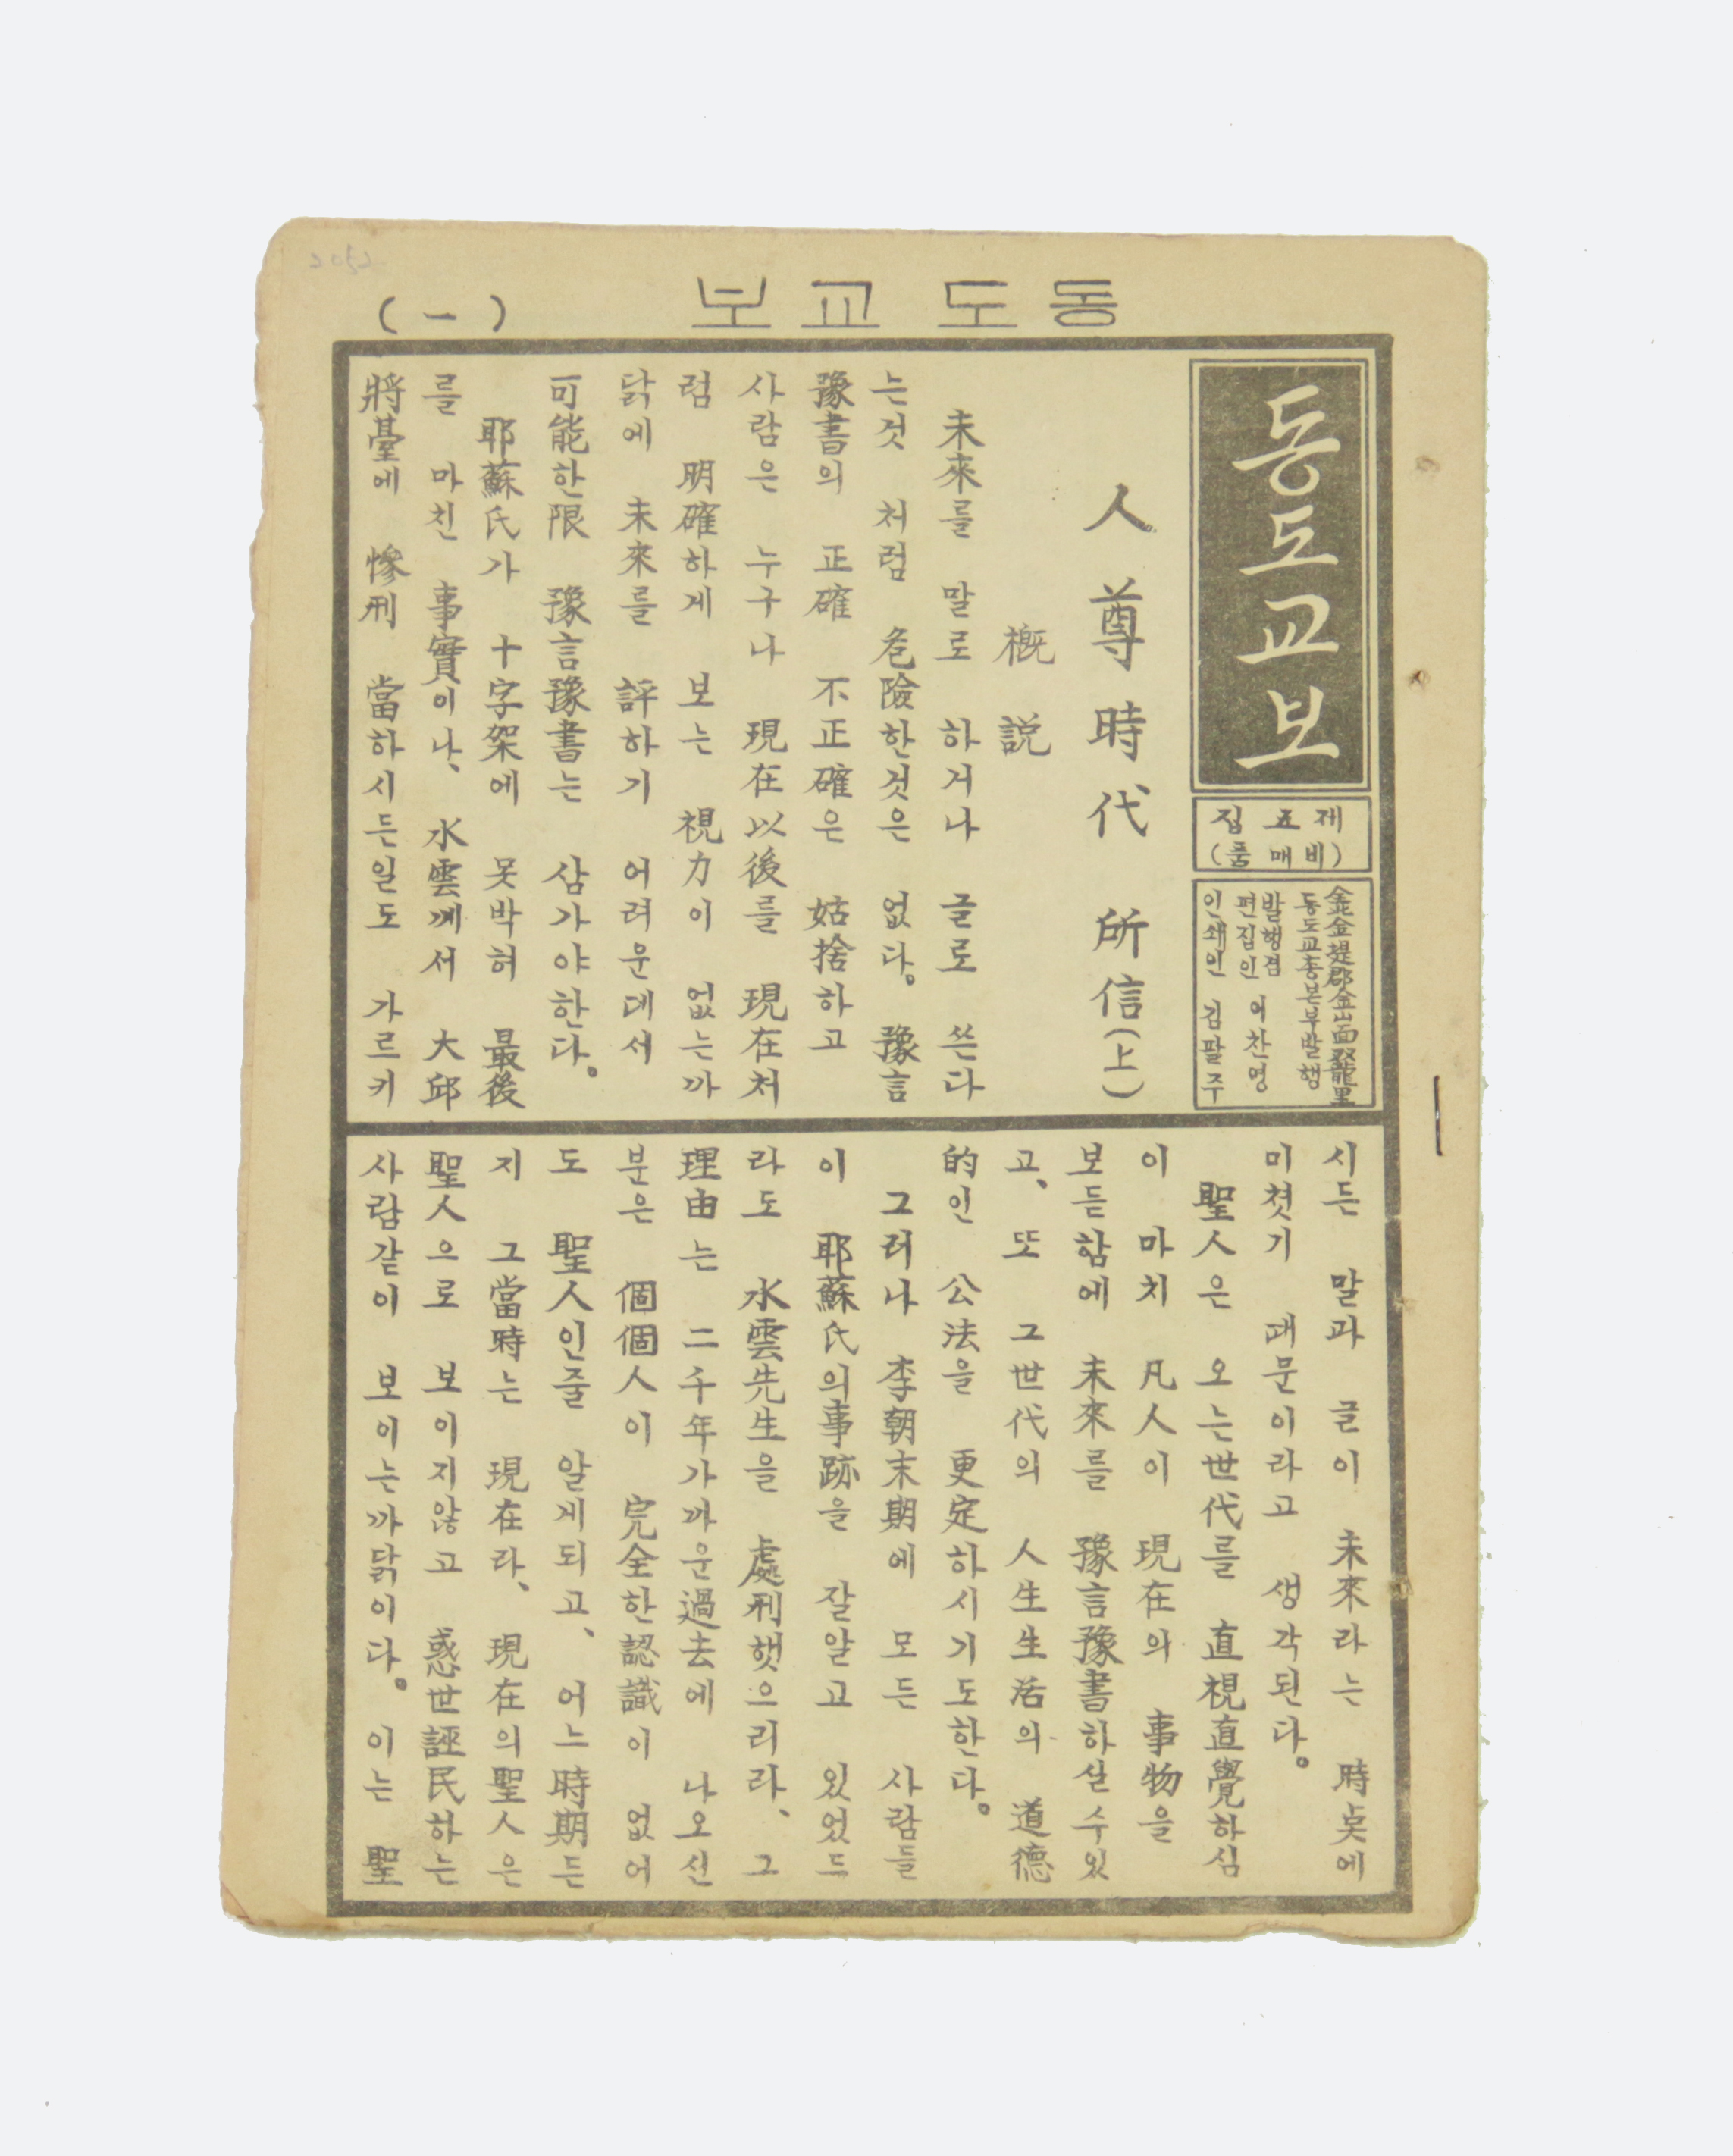 2052
동도교보
(一)
동도교보
제五집
(비매품)
金堤郡金山面双龍里
동도교총본부발행
발행겸
편집인 이찬영
인쇄인 김팔주
人尊時代 所信(上)
槪説
未來를 말로 하거나 글로 쓴다
는것 처럼 危險한것은 없다。 豫言
豫書의 正確 不正確은 姑捨하고
사람은 누구나 現在以後를 現在처
럼 明確하게 보는 視力이 없는까
닭에 未來를 評하기 어려운데서
可能한限 豫言豫書는 삼가야한다。
耶蘇氏가 十字架에 못박혀 最後
를 마친 事實이나、 水雲께서 大邱
將臺에 慘刑 當하시든일도 가르키
시든 말과 글이 未來라는 時点에
미첫기 때문이라고 생각된다。
聖人은 오는世代를 直視直覺하심
이 마치 凡人이 現在의 事物을
보든함에 未來를 豫言豫書하실수있
고、 또 그世代의 人生生活의 道德
的인 公法을 更定하시기도한다。
그러나 李朝末期에 모든 사람들
이 耶蘇氏의事跡을 잘알고 있었드
라도 水雲先生을 處刑햇으리라、 그
理由는 二千年가까운過去에 나오신
분은 個個人이 完全한認識이 없어
도 聖人인줄 알게되고、 어느時期든
지 그當時는 現在라、 現在의聖人은
聖人으로 보이지않고 惑世誣民하는
사람같이 보이는까닭이다。 이는 聖